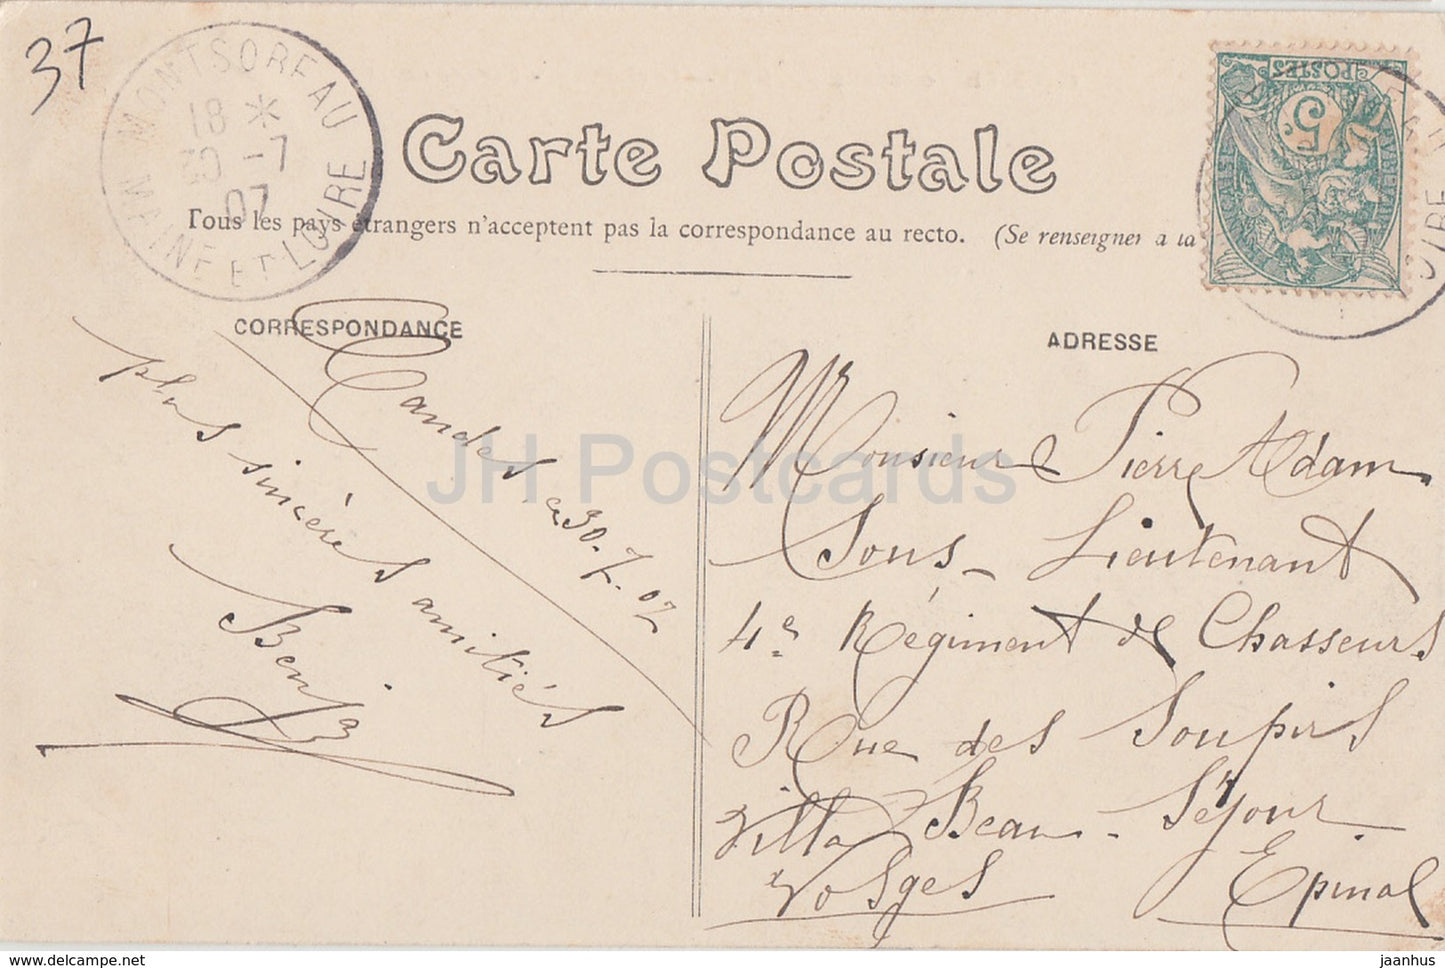 37
MONTSOREAU
18 *
30 -7
07
MAINE ET LOIRE
POSTES
5
Carte Postale
Tous les pays étrangers n'acceptent pas la correspondance au recto. (Se renseigner à la
CORRESPONDANCE
ADRESSE
Candes, ce 30. 7. 07
plus sincères amitiés
Benj.
Monsieur Pierre Adam
Sous-Lieutenant
4e Régiment de Chasseurs
Rue des Soupirs
Villa Beau-Séjour
Epinal
Vosges
JH Postcards
delcampe.net
jaanhus